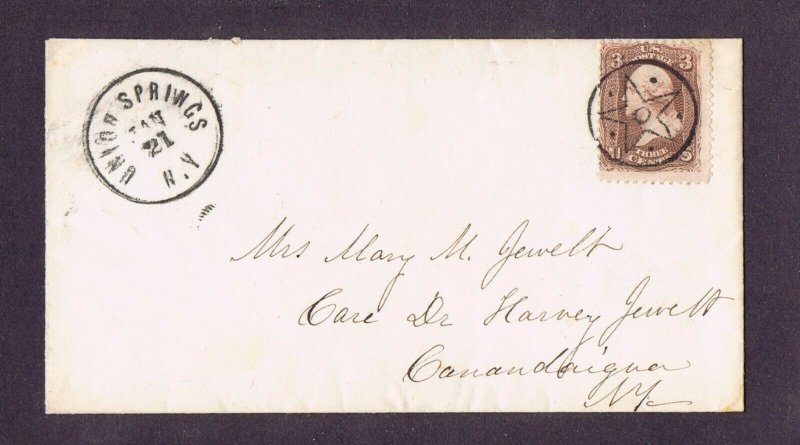 UNION SPRINGS
JAN
21
N.Y
U.S.
POSTAGE
3 3
THREE
CENTS
Mrs Mary M. Jewett
Care Dr Harvey Jewett
Canandaigua
NY